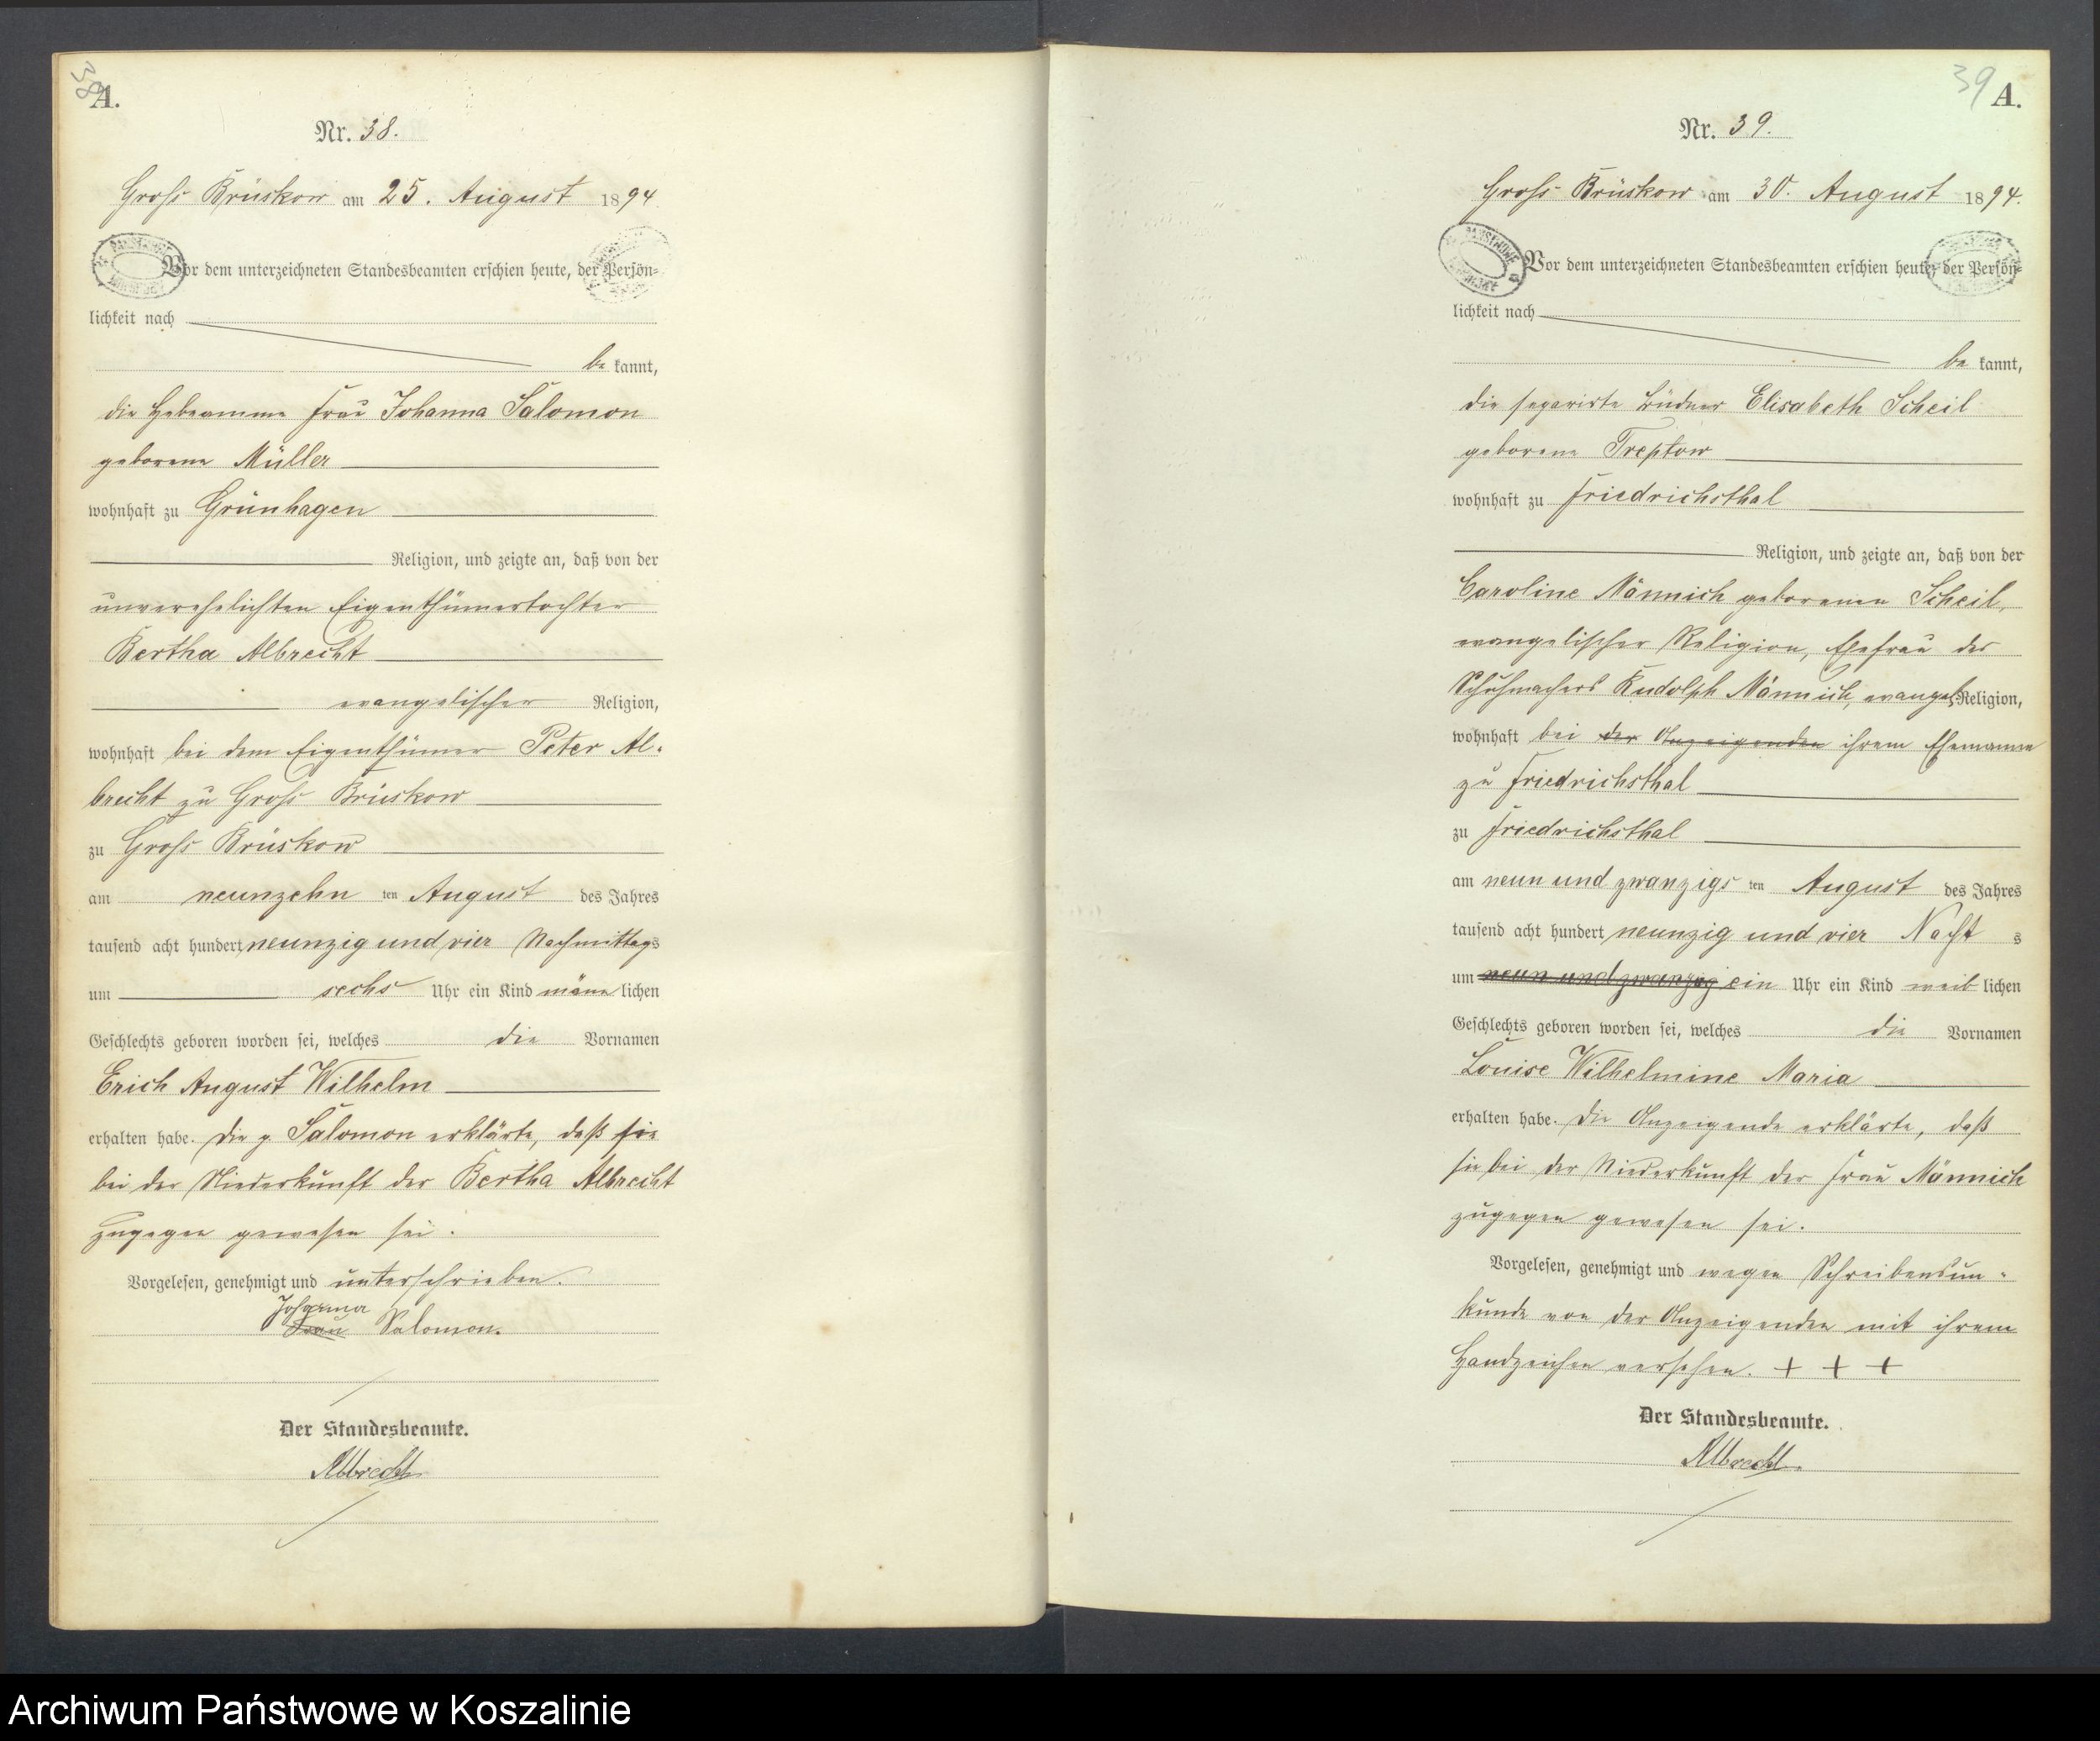 38
A.
Nr. 38.
Groß Brüskow am 25. August 1894
Vor dem unterzeichneten Standesbeamten erschien heute, der Persön-
lichkeit nach
be kannt,
die Hebeamme Frau Johanna Salomon
geborene Müller
wohnhaft zu Grünhagen
Religion, und zeigte an, daß von der
unverehelichten Eigenthümertochter
Bertha Albrecht
evangelischer Religion,
wohnhaft bei dem Eigenthümer Peter Al-
brecht zu Groß Brüskow
zu Groß Brüskow
am neunzehn ten August des Jahres
tausend acht hundert neunzig und vier Nachmittags
um sechs Uhr ein Kind männ lichen
Geschlechts geboren worden sei, welches die Vornamen
Erich August Wilhelm
erhalten habe. Die p. Salomon erklärte, daß sie
bei der Niederkunft der Bertha Albrecht
zugegen gewesen sei.
Vorgelesen, genehmigt und unterschrieben.
Johanna
Frau Salomon.
Der Standesbeamte.
Albrecht
39
A.
Nr. 39.
Groß Brüskow am 30. August 1894.
Vor dem unterzeichneten Standesbeamten erschien heute, der Persön-
lichkeit nach
be kannt,
die separirte Büdner Elisabeth Scheil
geborene Treptow
wohnhaft zu Friedrichsthal
Religion, und zeigte an, daß von der
Caroline Männich geborenen Scheil,
evangelischer Religion, Ehefrau des
Schuhmachers Rudolph Männich, evangel. Religion,
wohnhaft bei der Anzeigenden ihrem Ehemanne
zu Friedrichsthal
zu Friedrichsthal
am neun und zwanzigs ten August des Jahres
tausend acht hundert neunzig und vier Nacht s
um neun und zwanzig ein Uhr ein Kind weib lichen
Geschlechts geboren worden sei, welches die Vornamen
Louise Wilhelmine Maria
erhalten habe. Die Anzeigende erklärte, daß
sie bei der Niederkunft der Frau Männich
zugegen gewesen sei.
Vorgelesen, genehmigt und wegen Schreibensun-
kunde von der Anzeigenden mit ihrem
Handzeichen versehen. + + +
Der Standesbeamte.
Albrecht.
Archiwum Państwowe w Koszalinie